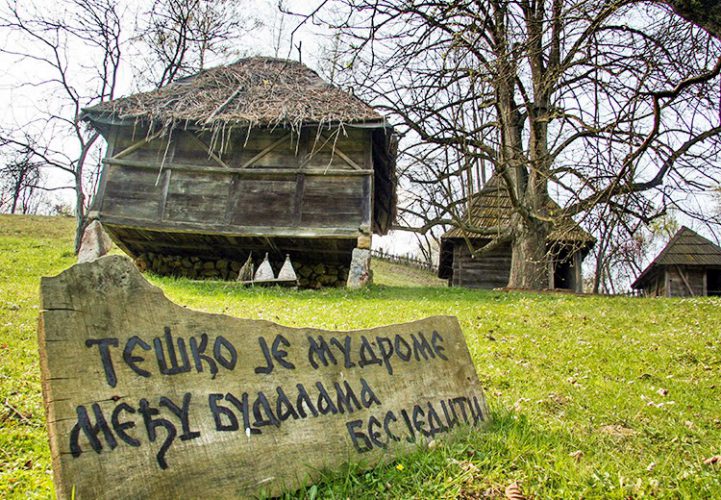 Тешко је мудроме
међу будалама
бесједити